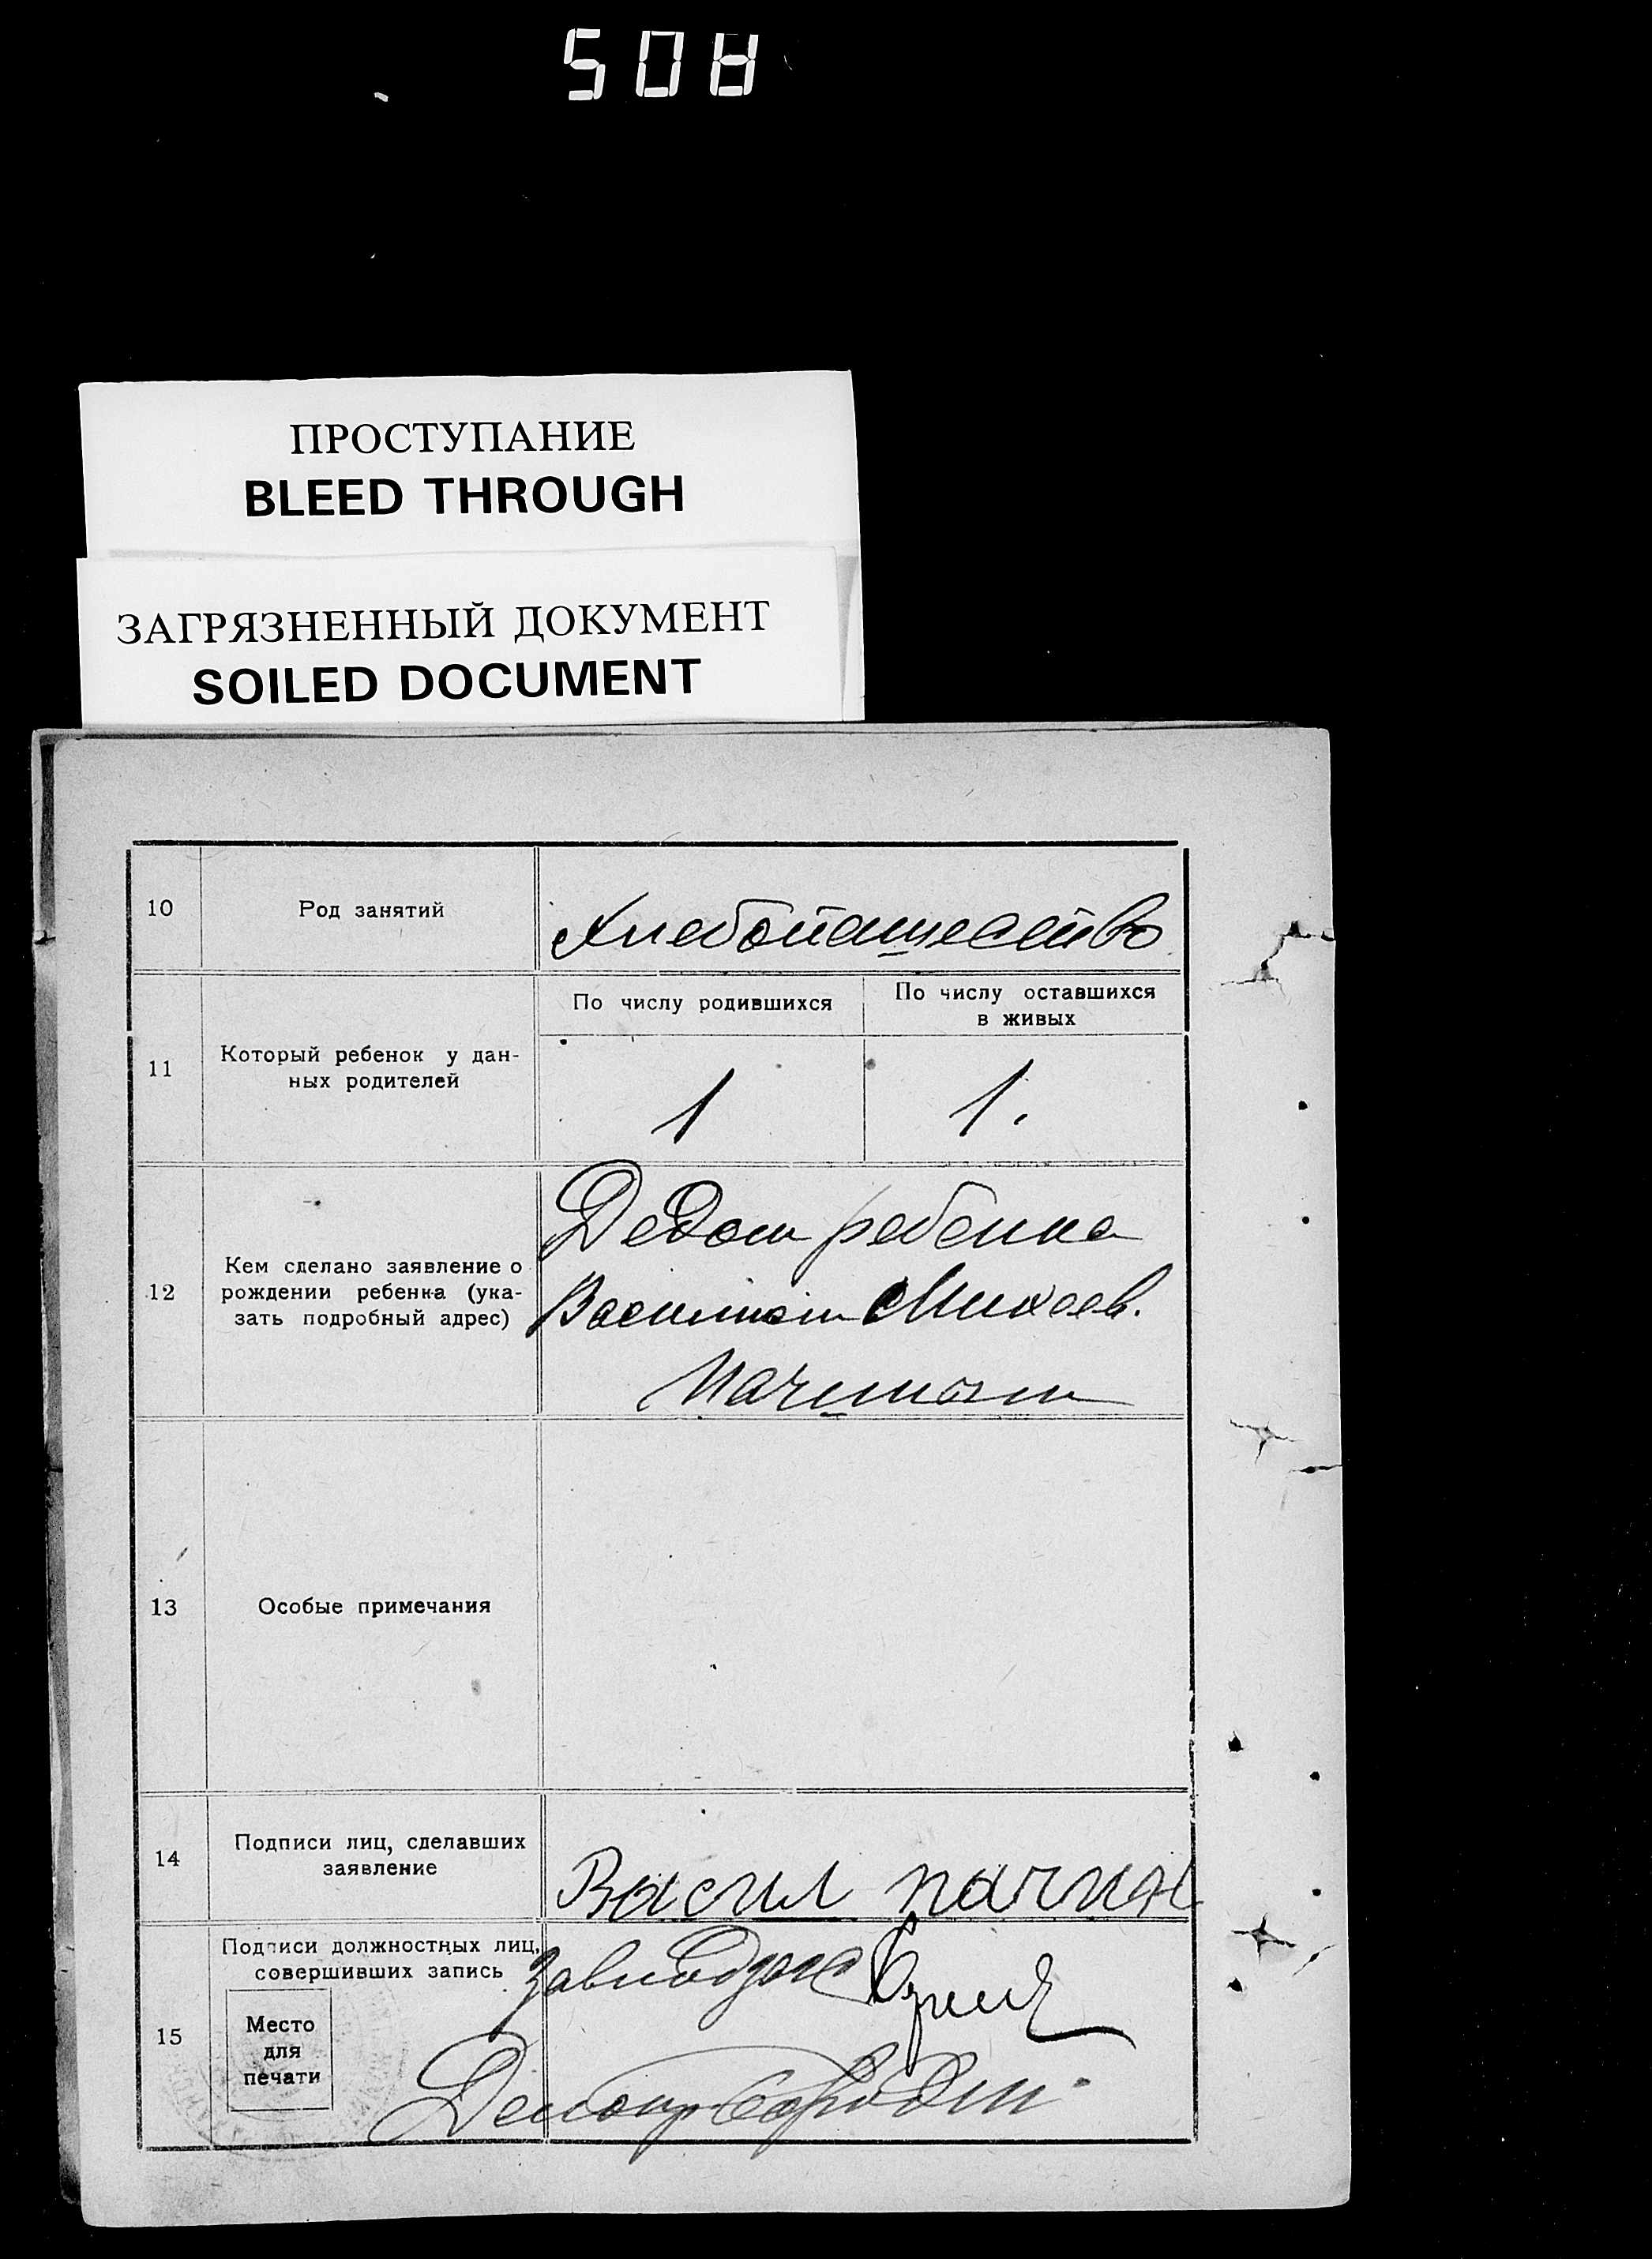 508
ПРОСТУПАНИЕ
BLEED THROUGH
ЗАГРЯЗНЕННЫЙ ДОКУМЕНТ
SOILED DOCUMENT
10
Род занятий
Хлебопашество
11
Который ребенок у дан-
ных родителей
По числу родившихся
По числу оставшихся
в живых
1
1.
12
Кем сделано заявление о
рождении ребенка (ука-
зать подробный адрес)
Дедом ребенка
Василием Михеев.
Пачиным
13
Особые примечания
14
Подписи лиц, сделавших
заявление
Васил пачин
15
Подписи должностных лиц,
совершивших запись
Место
для
печати
Завподзагс
Делопр